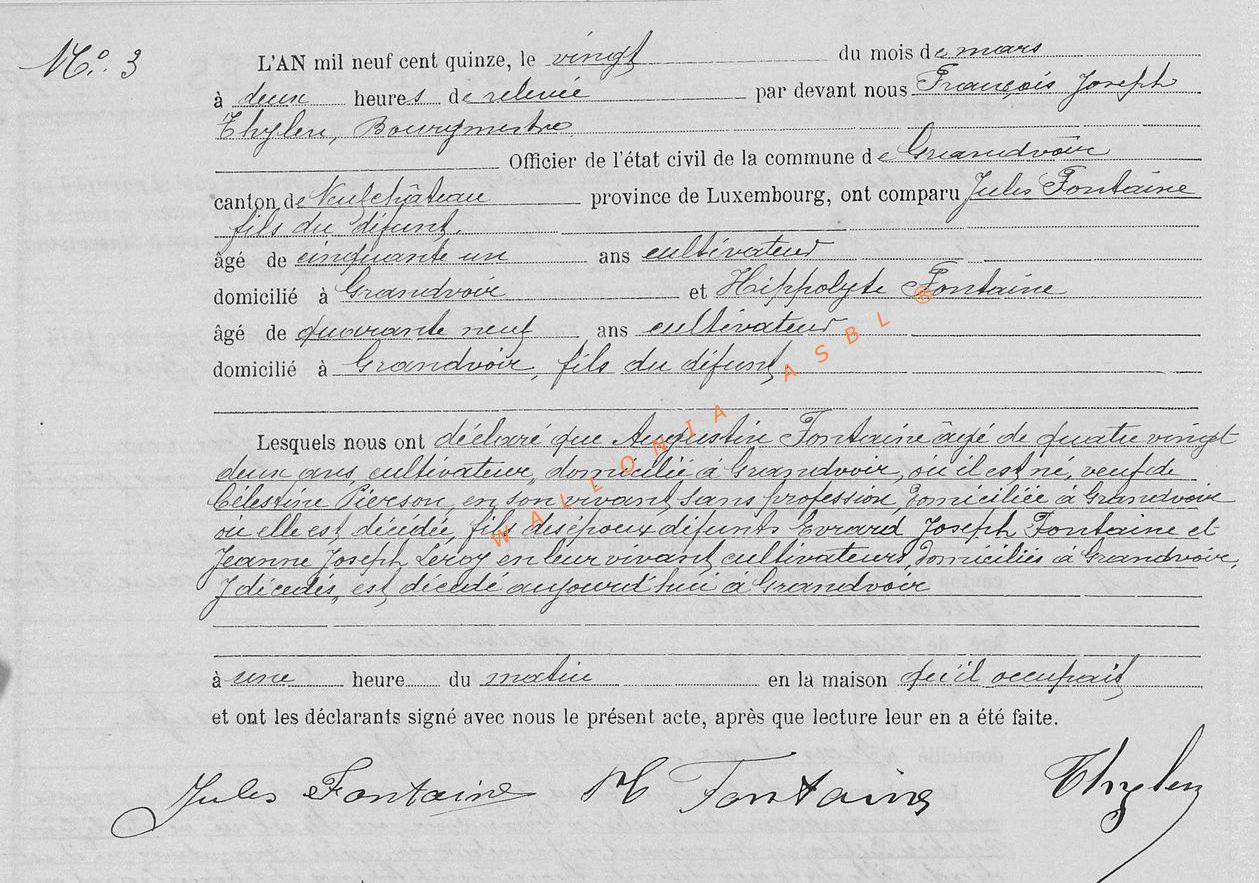 N° 3
L'AN mil neuf cent quinze, le vingt du mois de mars
à deux heures de relevée par devant nous François Joseph
Thylen, Bourgmestre
Officier de l'état civil de la commune de Grandvoir
canton de Neufchâteau province de Luxembourg, ont comparu Jules Fontaine
fils du défunt,
âgé de cinquante un ans cultivateur
domicilié à Grandvoir et Hippolyte Fontaine
âgé de quarante neuf ans cultivateur
domicilié à Grandvoir, fils du défunt,
Lesquels nous ont déclaré que Augustin Fontaine âgé de quatre vingt
deux ans, cultivateur, domicilié à Grandvoir, où il est né, veuf de
Célestine Pierson, en son vivant sans profession, domiciliée à Grandvoir
où elle est décédée, fils des époux défunts Evrard Joseph Fontaine et
Jeanne Joseph Leroy en leur vivant cultivateurs, domiciliés à Grandvoir,
y décédés, est décédé aujourd'hui à Grandvoir
à une heure du matin en la maison qu'il occupait
et ont les déclarants signé avec nous le présent acte, après que lecture leur en a été faite.
Jules Fontaine H Fontaine Thylen
WALLONIA ASBL ®